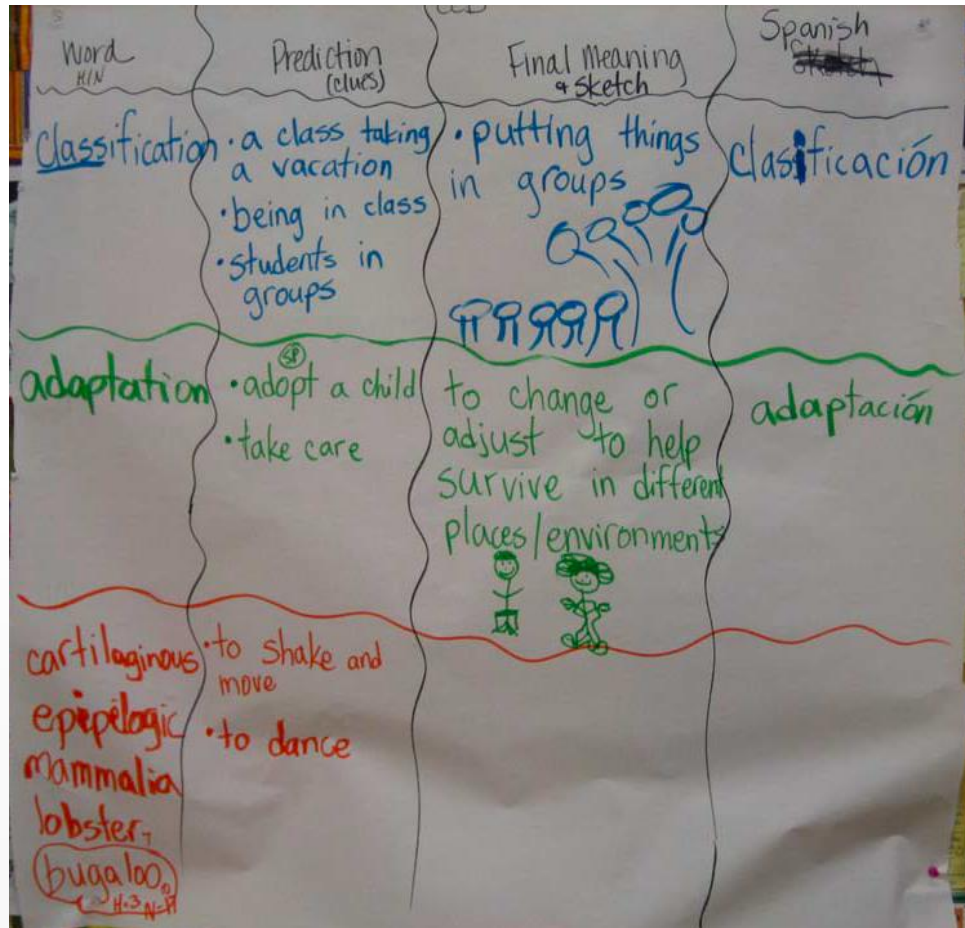 Word
H/N
Prediction
(clues)
Final Meaning
+ sketch
Spanish
classification
• a class taking
a vacation
• being in class
• students in
groups
• putting things
in groups
clasificación
adaptation
SP
• adopt a child
• take care
to change or
adjust to help
survive in different
places/environments
adaptación
cartilaginous
epipelogic
mammalia
lobster
bugaloo
• to shake and
move
• to dance